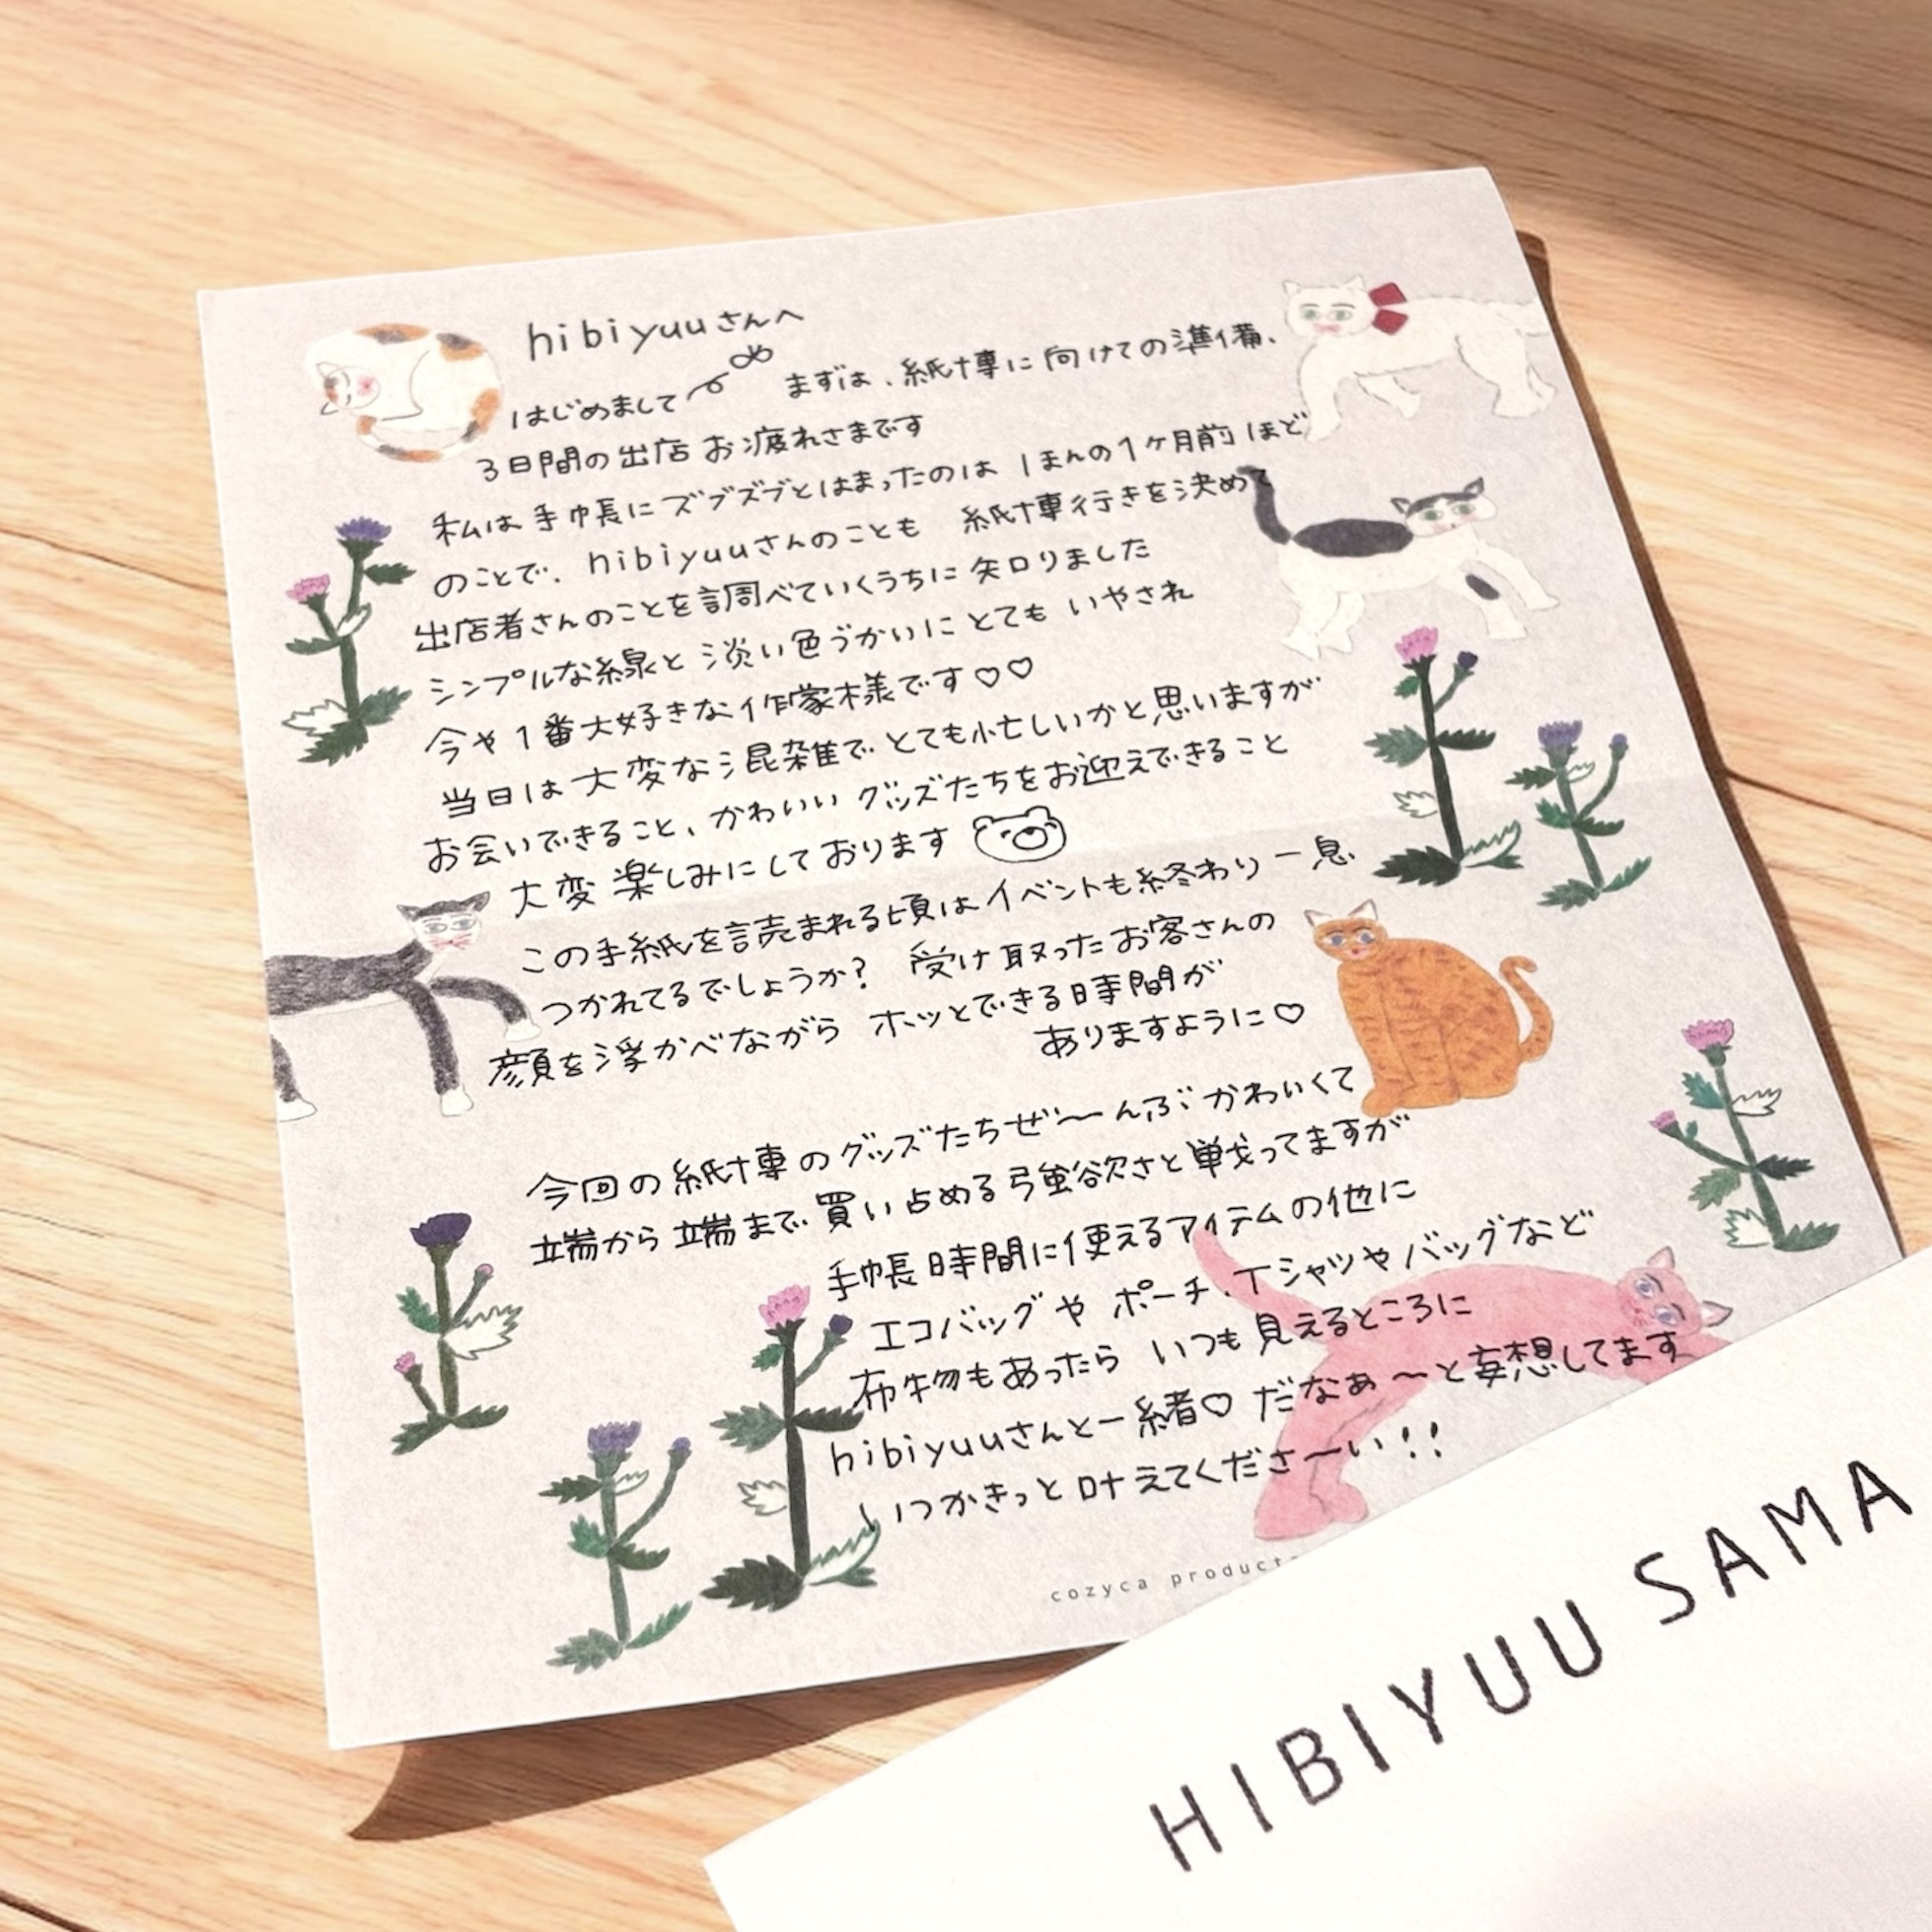 hibiyuuさんへ
はじめまして まずは、紙博に向けての準備、
3日間の出店 お疲れさまです
私は手帳にズブズブとはまったのは ほんの1ヶ月前ほど
のことで、hibiyuuさんのことも 紙博行きを決めて
出店者さんのことを調べていくうちに知りました
シンプルな線と淡い色づかいにとても いやされ
今や1番大好きな作家様です♡♡
当日は大変な混雑でとても忙しいかと思いますが
お会いできること、かわいいグッズたちをお迎えできること
大変楽しみにしております
この手紙を読まれる頃はイベントも終わり一息
つかれてるでしょうか? 受け取ったお客さんの
顔を浮かべながら ホッとできる時間が
ありますように♡
今回の紙博のグッズたちぜ〜んぶかわいくて
端から端まで買い占める強欲さと戦ってますが
手帳時間に使えるアイテムの他に
エコバッグや ポーチ、Tシャツやバッグなど
布物もあったら いつも見えるところに
hibiyuuさんと一緒♡だなぁ〜と妄想してます
いつかきっと叶えてくださーい!!
cozyca product
HIBIYUU SAMA